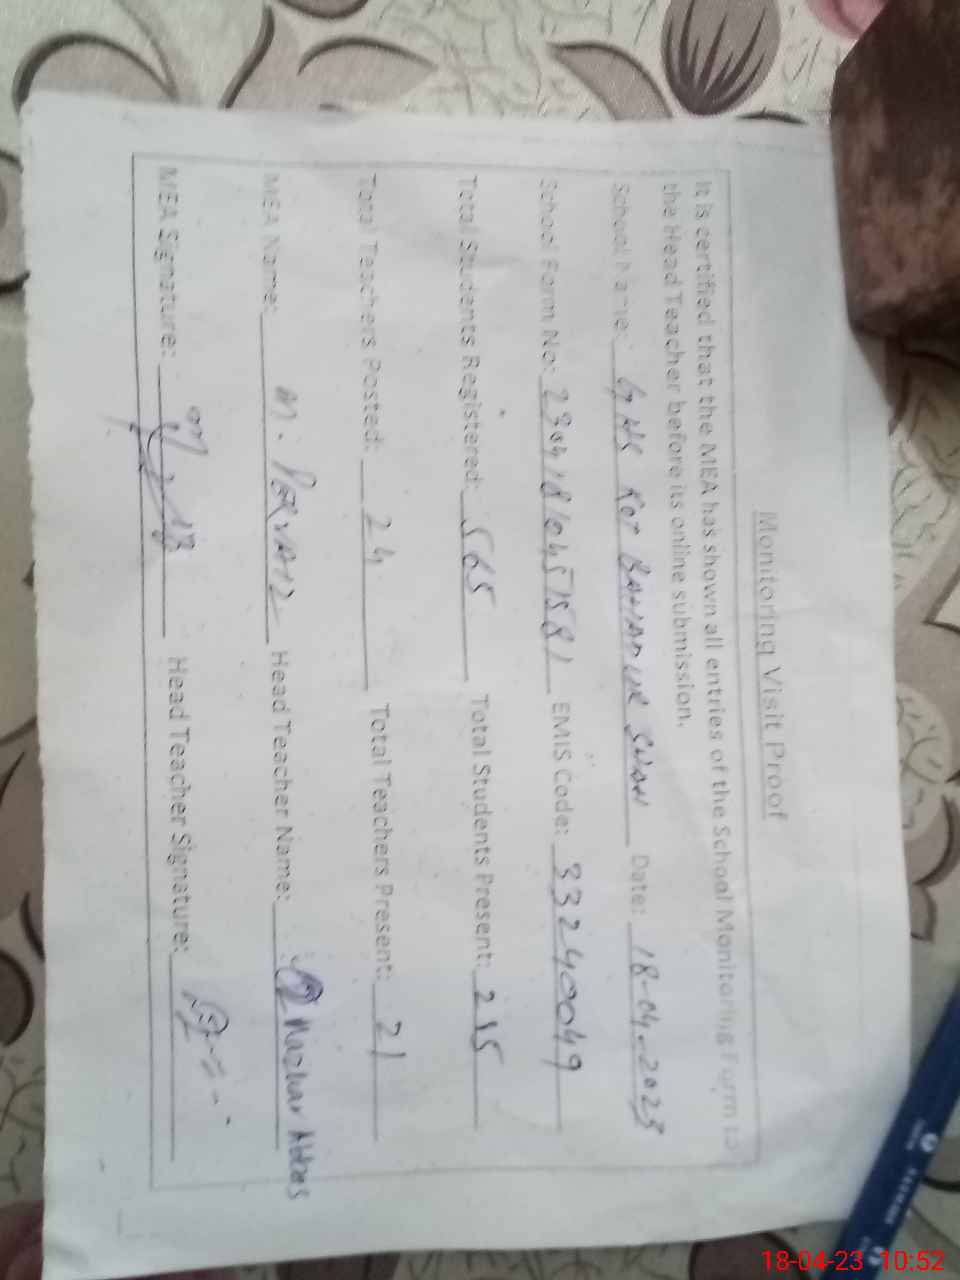 Monitoring Visit Proof
It is certified that the MEA has shown all entries of the School Monitoring Form to
the Head Teacher before its online submission.
School Name: GHS KOT BAHADUR Date: 18-04-2023
School Form No: EMIS Code: 33240049
Total Students Registered: 565 Total Students Present: 215
Total Teachers Posted: 24 Total Teachers Present: 21
MEA Name: M. PERVAIZ Head Teacher Name: Mazhar Abbas
MEA Signature: Head Teacher Signature:
18-04-23 10:52